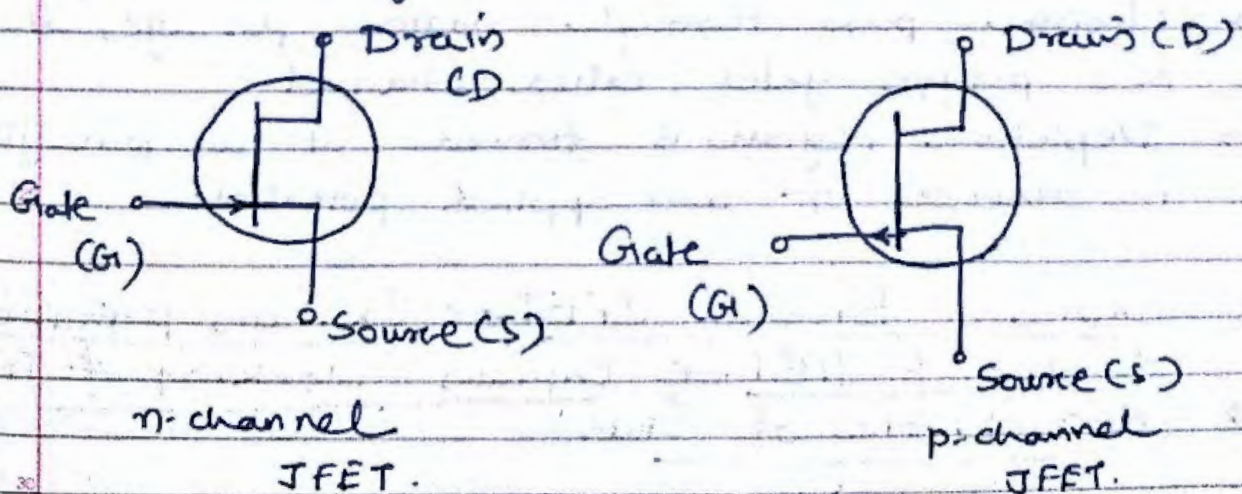 Drain
(D
Gate
(G)
Source (S)
n-channel
JFET.
Drain (D)
Gate
(G)
Source (S)
p-channel
JFET.
30